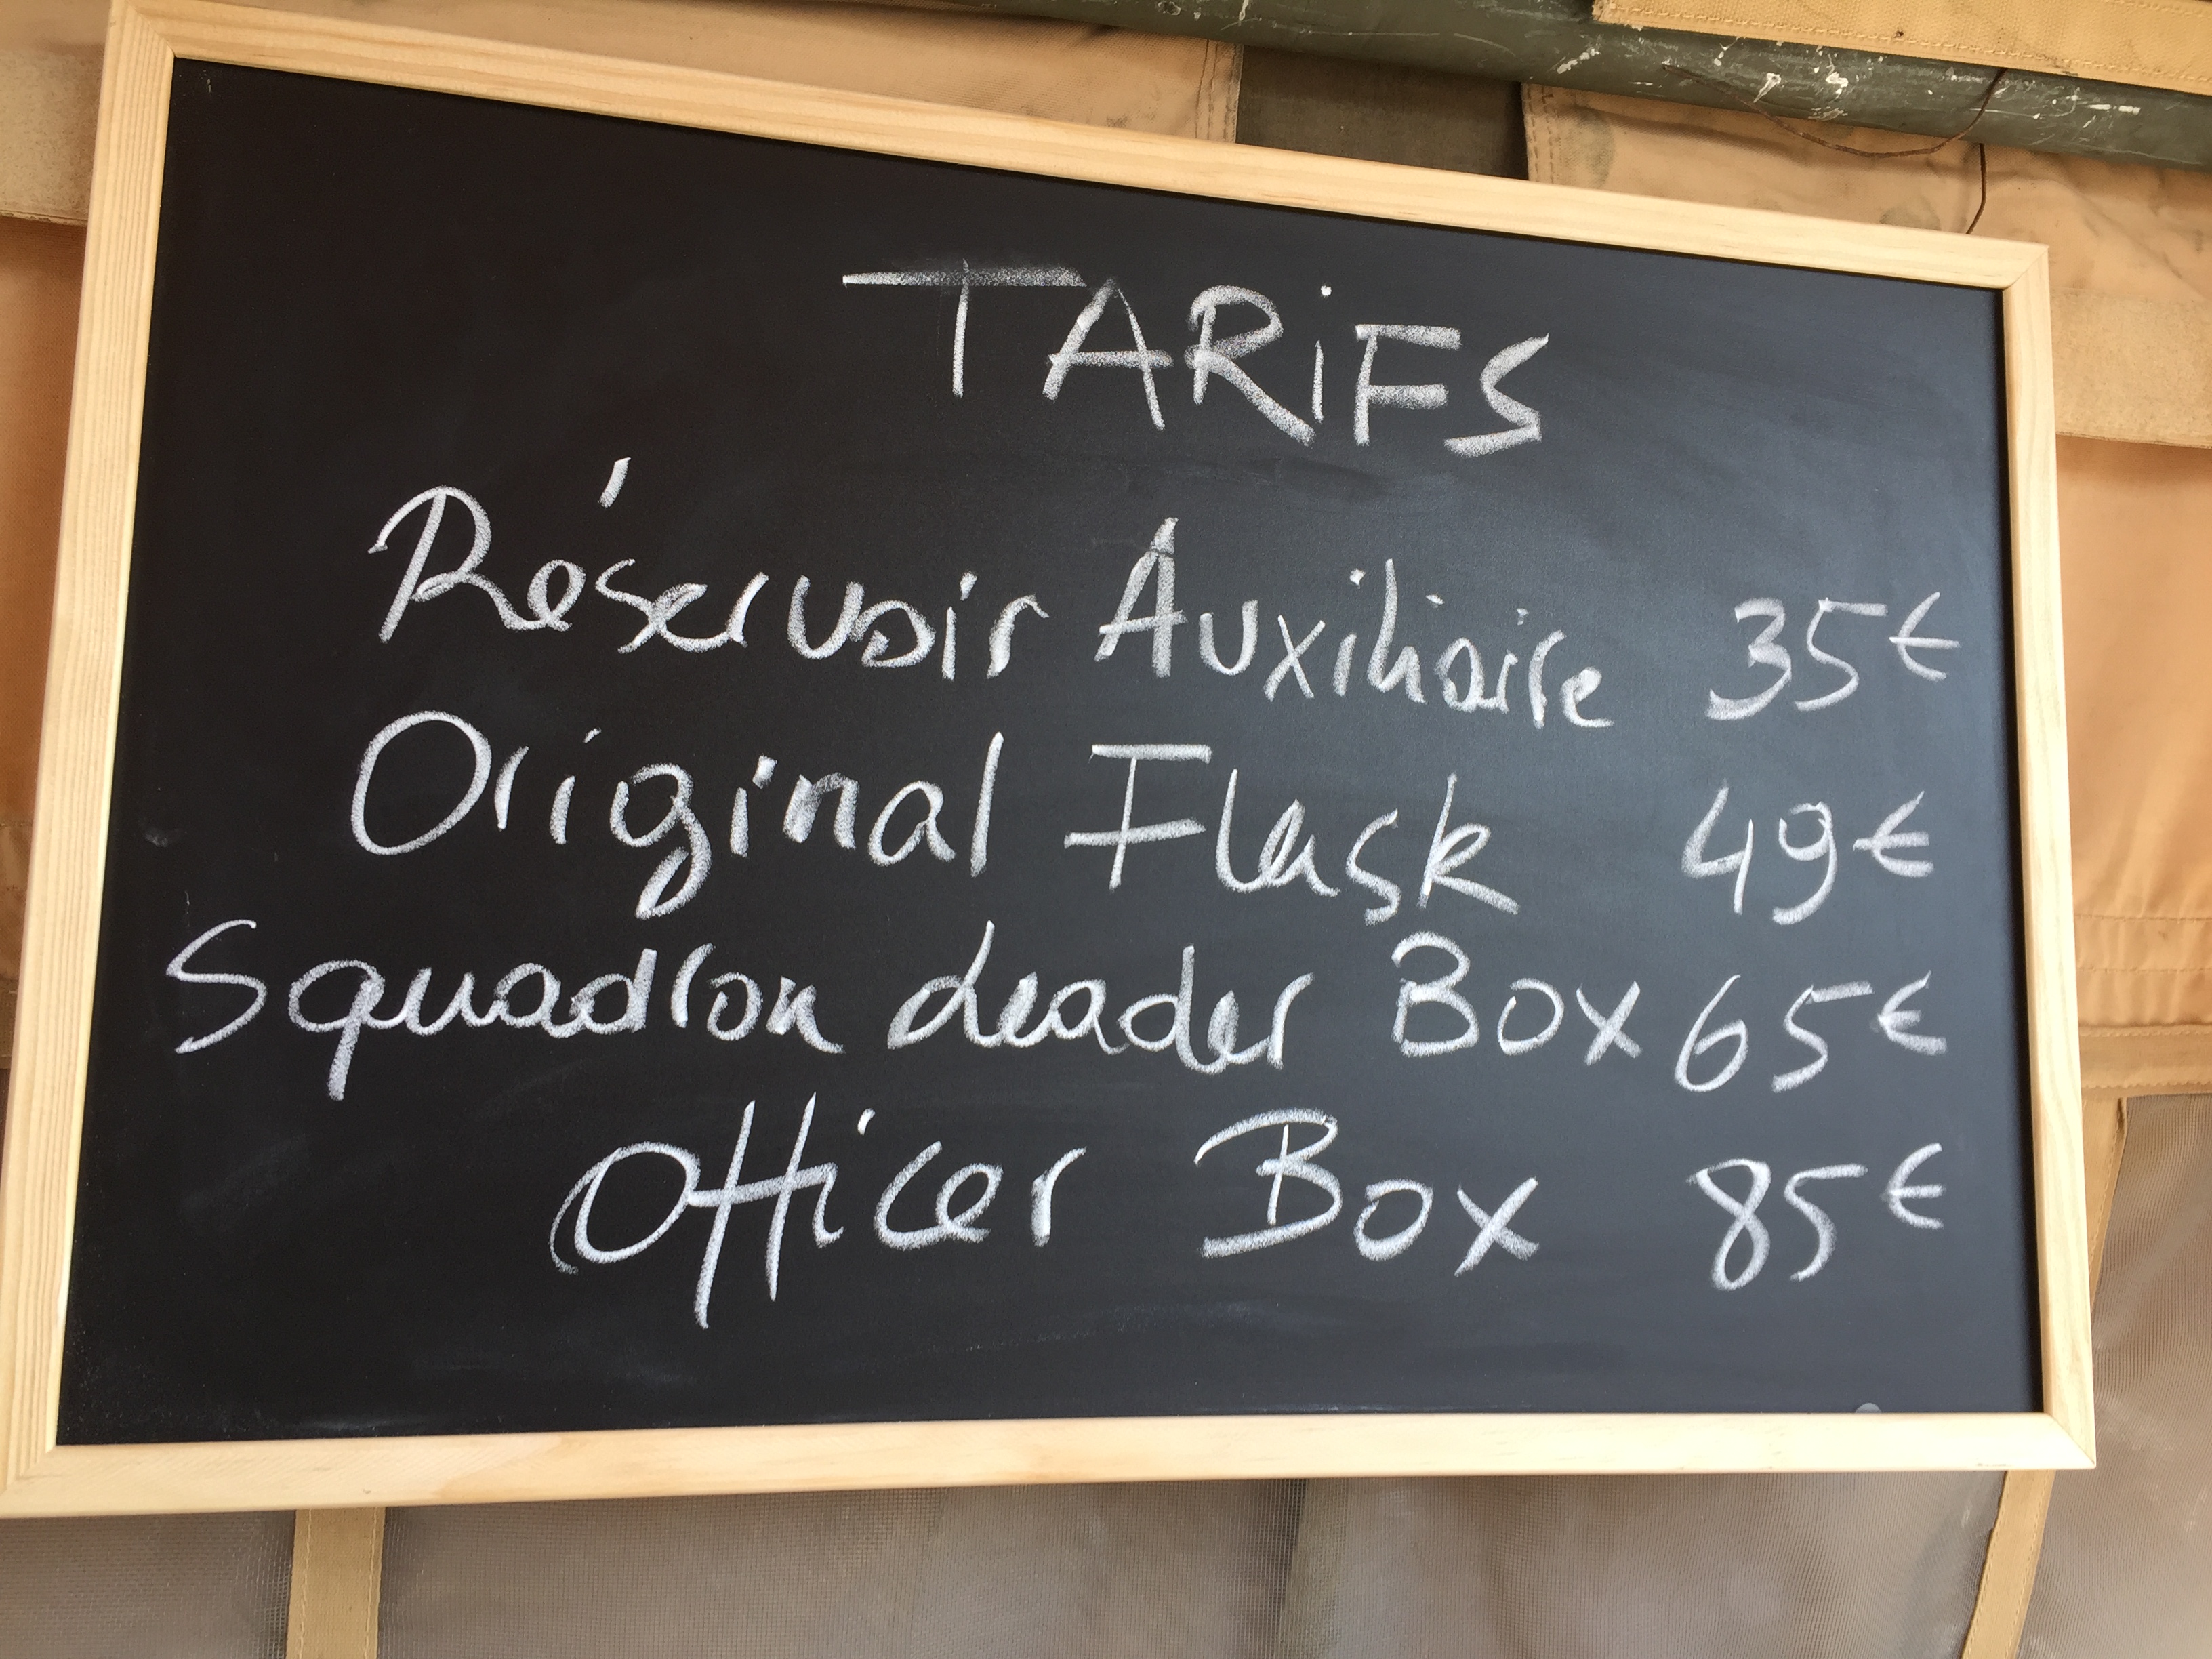 TARiFS
Réservoir Auxiliaire 35€
Original Flask 49€
Squadron Leader Box 65€
Officer Box 85€